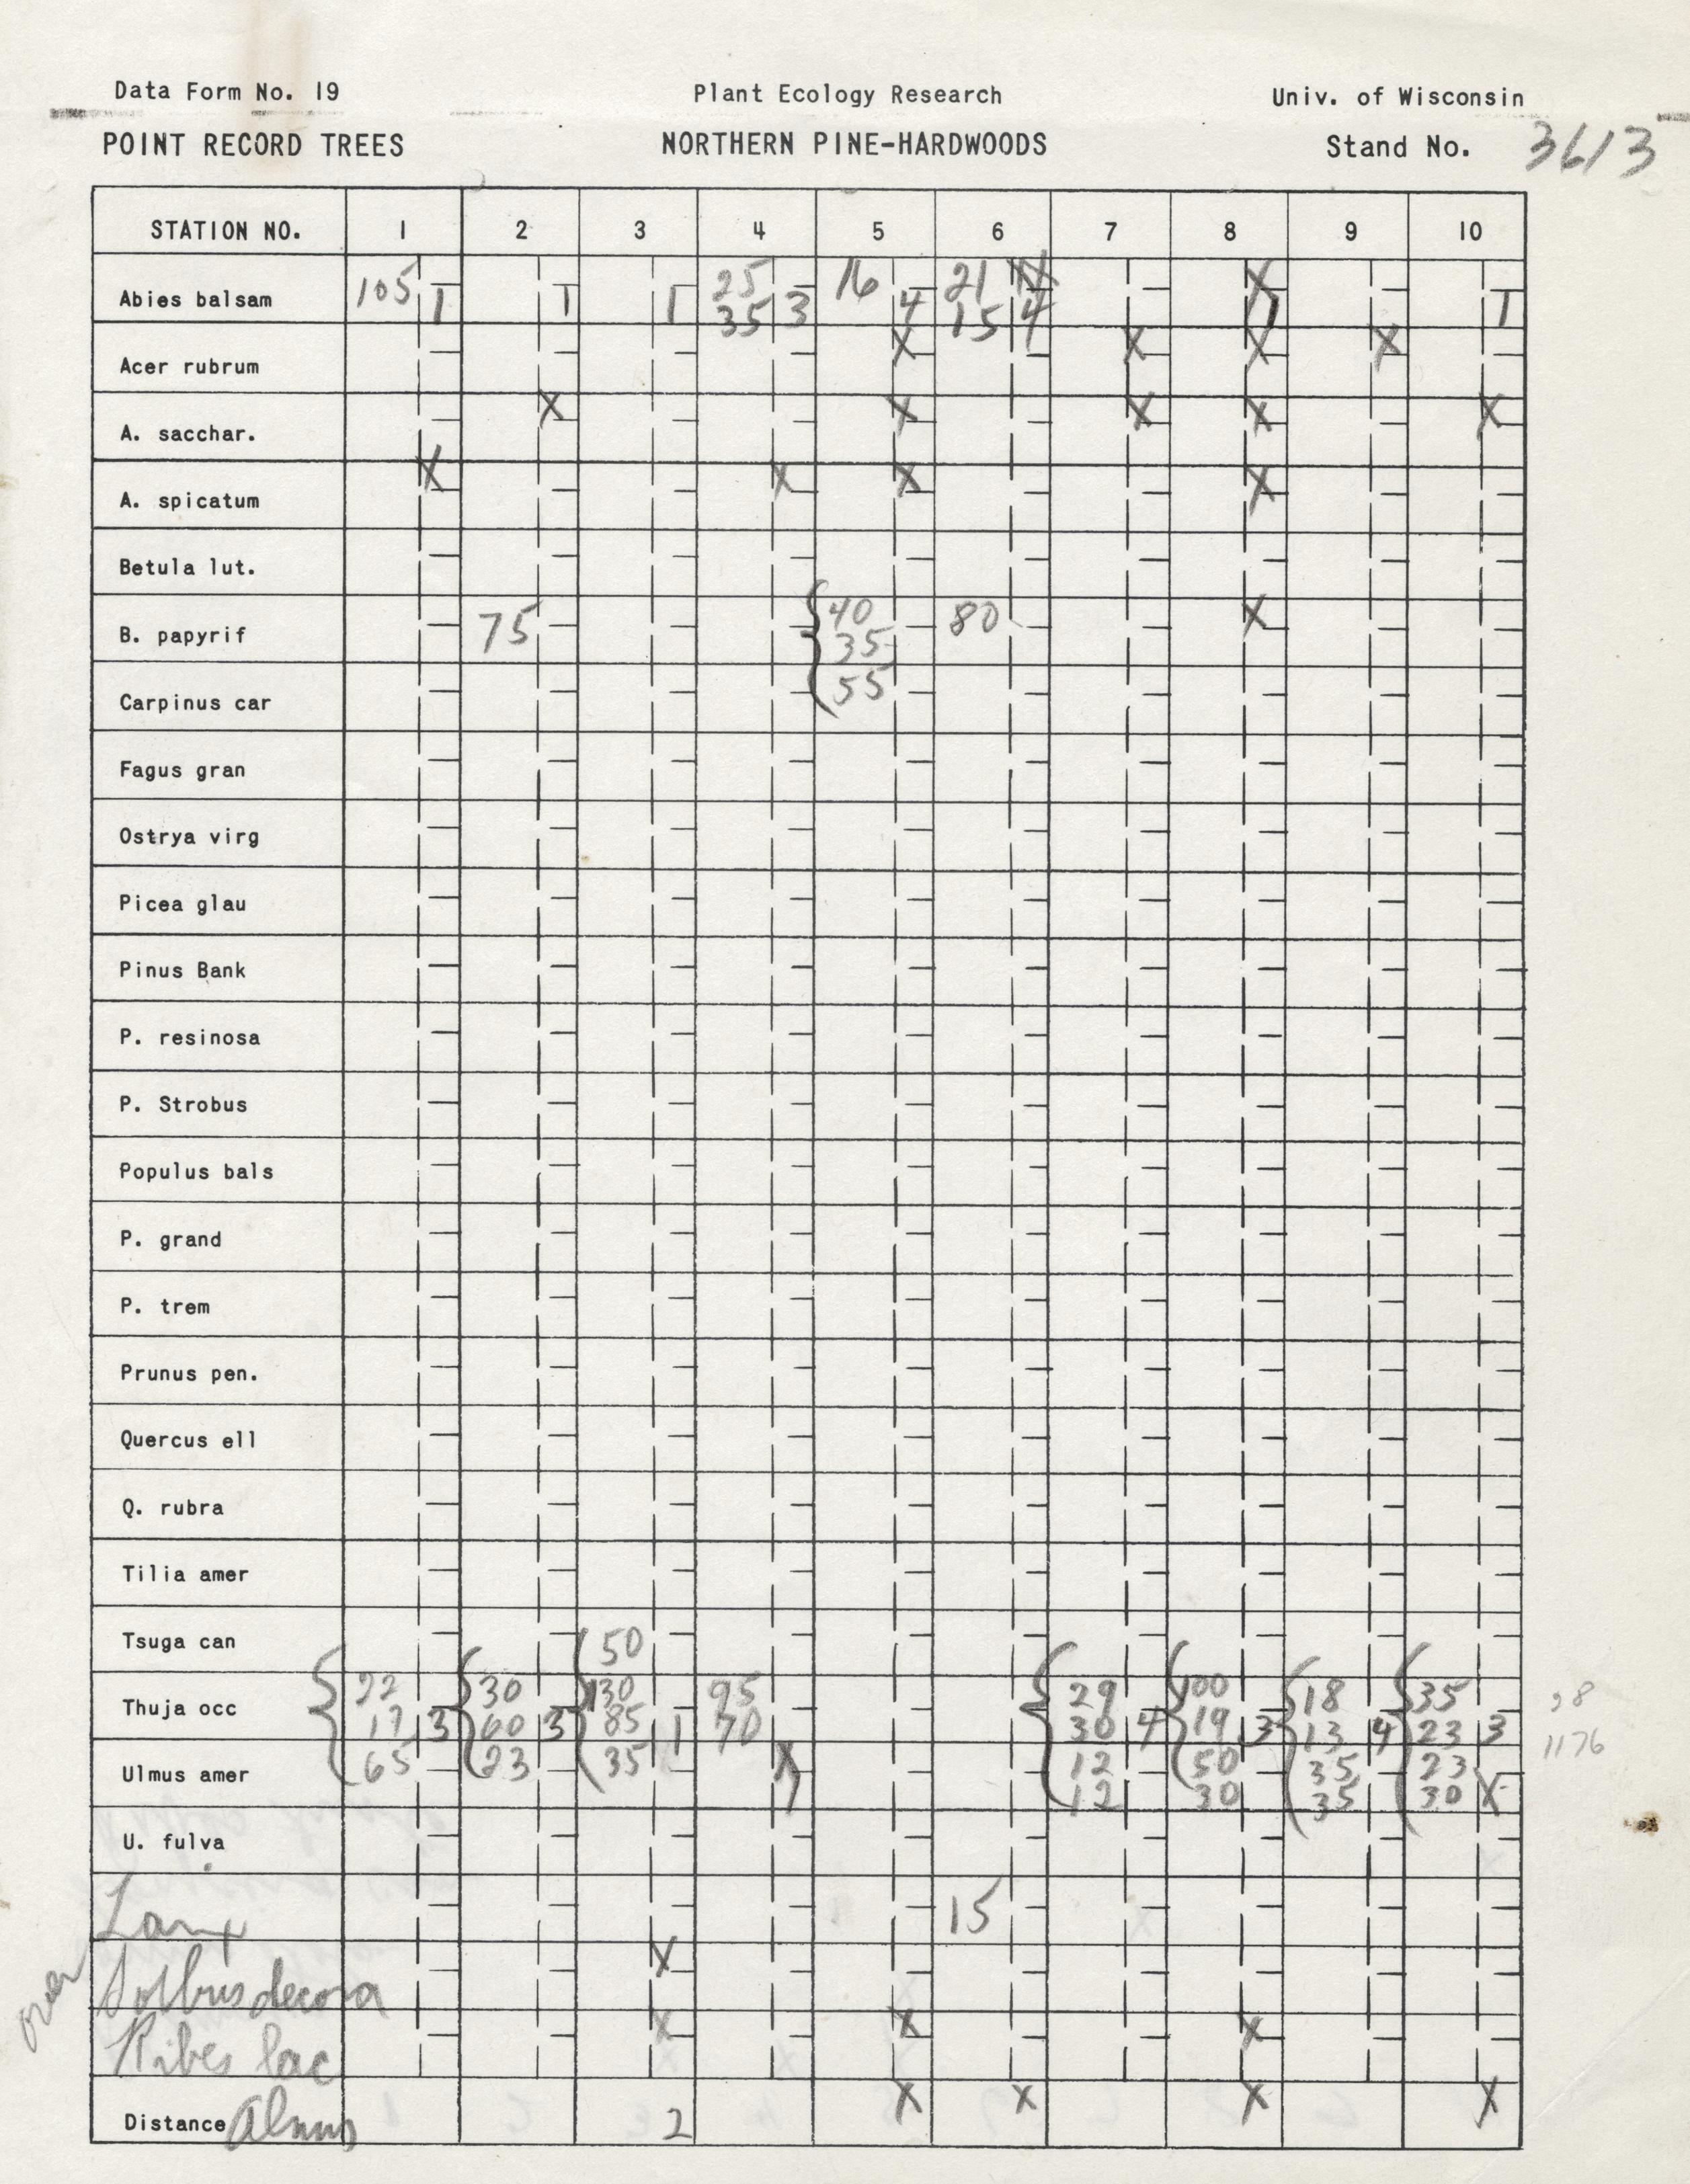 Data Form No. 19 Plant Ecology Research Univ. of Wisconsin
POINT RECORD TREES NORTHERN PINE-HARDWOODS Stand No. 3613
STATION NO. 1 2 3 4 5 6 7 8 9 10
105 25 16 21 X
Abies balsam 1 1 1 35 3 4 15 4 1 1
Acer rubrum X X X X
A. sacchar. X X X X X
A. spicatum X X X X
Betula lut.
B. papyrif 75 40 80 X
35
Carpinus car 55
Fagus gran
Ostrya virg
Picea glau
Pinus Bank
P. resinosa
P. Strobus
Populus bals
P. grand
P. trem
Prunus pen.
Quercus ell
Q. rubra
Tilia amer
Tsuga can 50
22 30 130 95 29 100 18 35
Thuja occ 17 3 60 3 85 1 70 30 4 19 3 13 4 23 3 1176
Ulmus amer 65 23 35 X 12 50 35 23
12 30 35 30 X
U. fulva
Larix 15
over Sorbus decora X
Ribes lac X X X
Distance Alnus 2 X X X X